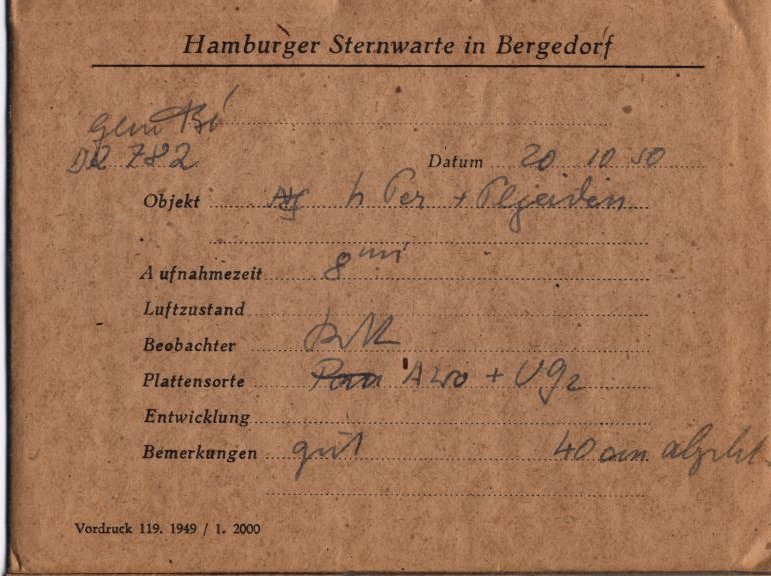 Hamburger Sternwarte in Bergedorf
gem Bi
782
Datum 20 10 50
Objekt h Per + Plejaden
Aufnahmezeit 8 min
Luftzustand
Beobachter
Plattensorte + UG2
Entwicklung
Bemerkungen gut 40 cm
Vordruck 119. 1949 / 1. 2000